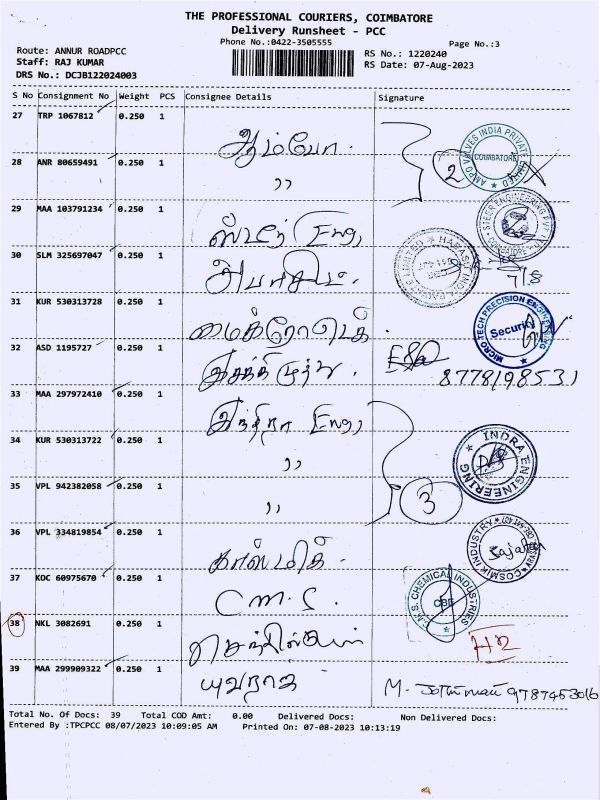 THE PROFESSIONAL COURIERS, COIMBATORE
Delivery Runsheet - PCC
Phone No.:0422-3505555
Page No.:3
Route: ANNUR ROADPCC
Staff: RAJ KUMAR
DRS No.: DCJB122024003
RS No.: 1220240
RS Date: 07-Aug-2023
S No Consignment No Weight PCS Consignee Details Signature
27 TRP 1067812 0.250 1
28 ANR 80659491 0.250 1 ,,
AMPO VALVES INDIA PRIVATE LIMITED
COIMBATORE
2
29 MAA 103791234 0.250 1 ஸ்டீர் Eng,
30 SLM 325697047 0.250 1
31 KUR 530313728 0.250 1 மைக்ரோடெக்
MICRO TECH PRECISION ENGINEERING
Security
32 ASD 1195727 0.250 1
8778198531
33 MAA 297972410 0.250 1 இந்திரா Eng,
34 KUR 530313722 0.250 1 ,,
INDRA ENGINEERING
35 VPL 942382058 0.250 1 ,,
3
36 VPL 334819854 0.250 1 காஸ்மிக்
COSMIK INDUSTRY
37 KOC 60975670 0.250 1 C.M.S.
CHEMICAL INDUSTRIES
CBE
38 NKL 3082691 0.250 1
H2
39 MAA 299909322 0.250 1 யுவராஜ்
M. 9787453016
Total No. Of Docs: 39 Total COD Amt: 0.00 Delivered Docs: Non Delivered Docs:
Entered By :TPCPCC 08/07/2023 10:09:05 AM Printed On: 07-08-2023 10:13:19